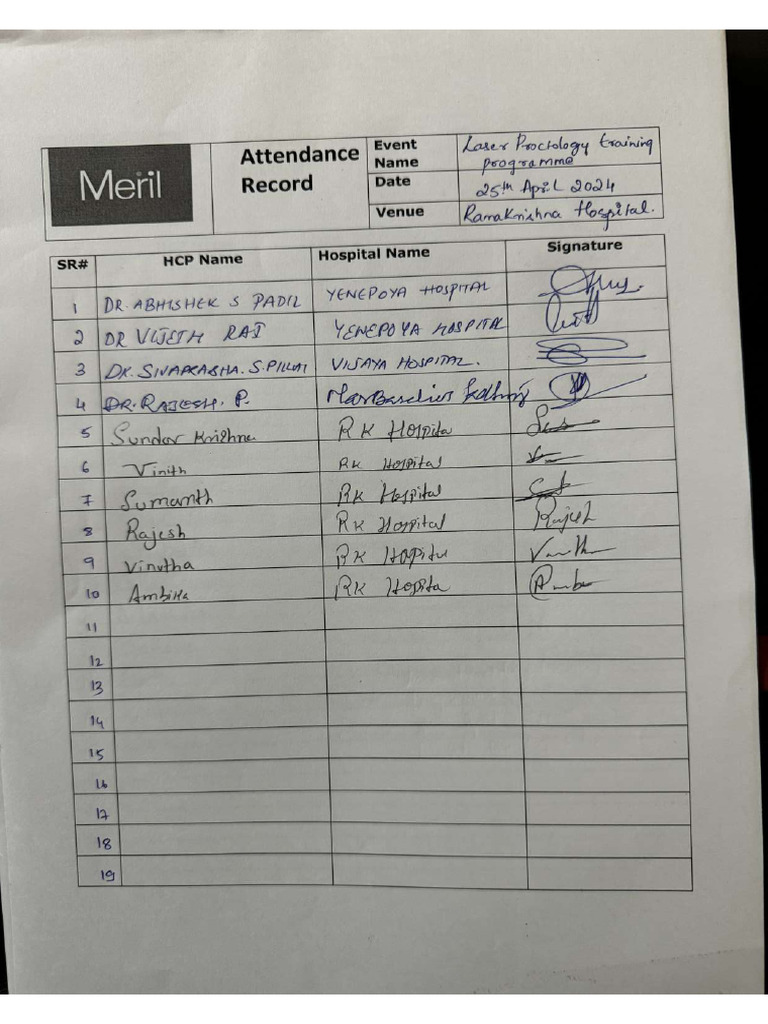 Meril
Attendance Record
Event Name Laser Proctology training programme
Date 25th April 2024
Venue RamaKrishna Hospital.
SR# HCP Name Hospital Name Signature
1 DR. ABHISHEK S PADIL YENEPOYA HOSPITAL
2 DR VIJETH RAI YENEPOYA HOSPITAL
3 DR. SIVAPRABHA. S. PILLAI VIJAYA HOSPITAL.
4 DR. RAJESH. P.
5 Sundar Krishna RK Hospita
6 Vinith RK Hospital
7 Sumanth RK Hospital
8 Rajesh RK Hospital Rajesh
9 Vinutha RK
10 Ambika RK Hospita
11
12
13
14
15
16
17
18
19